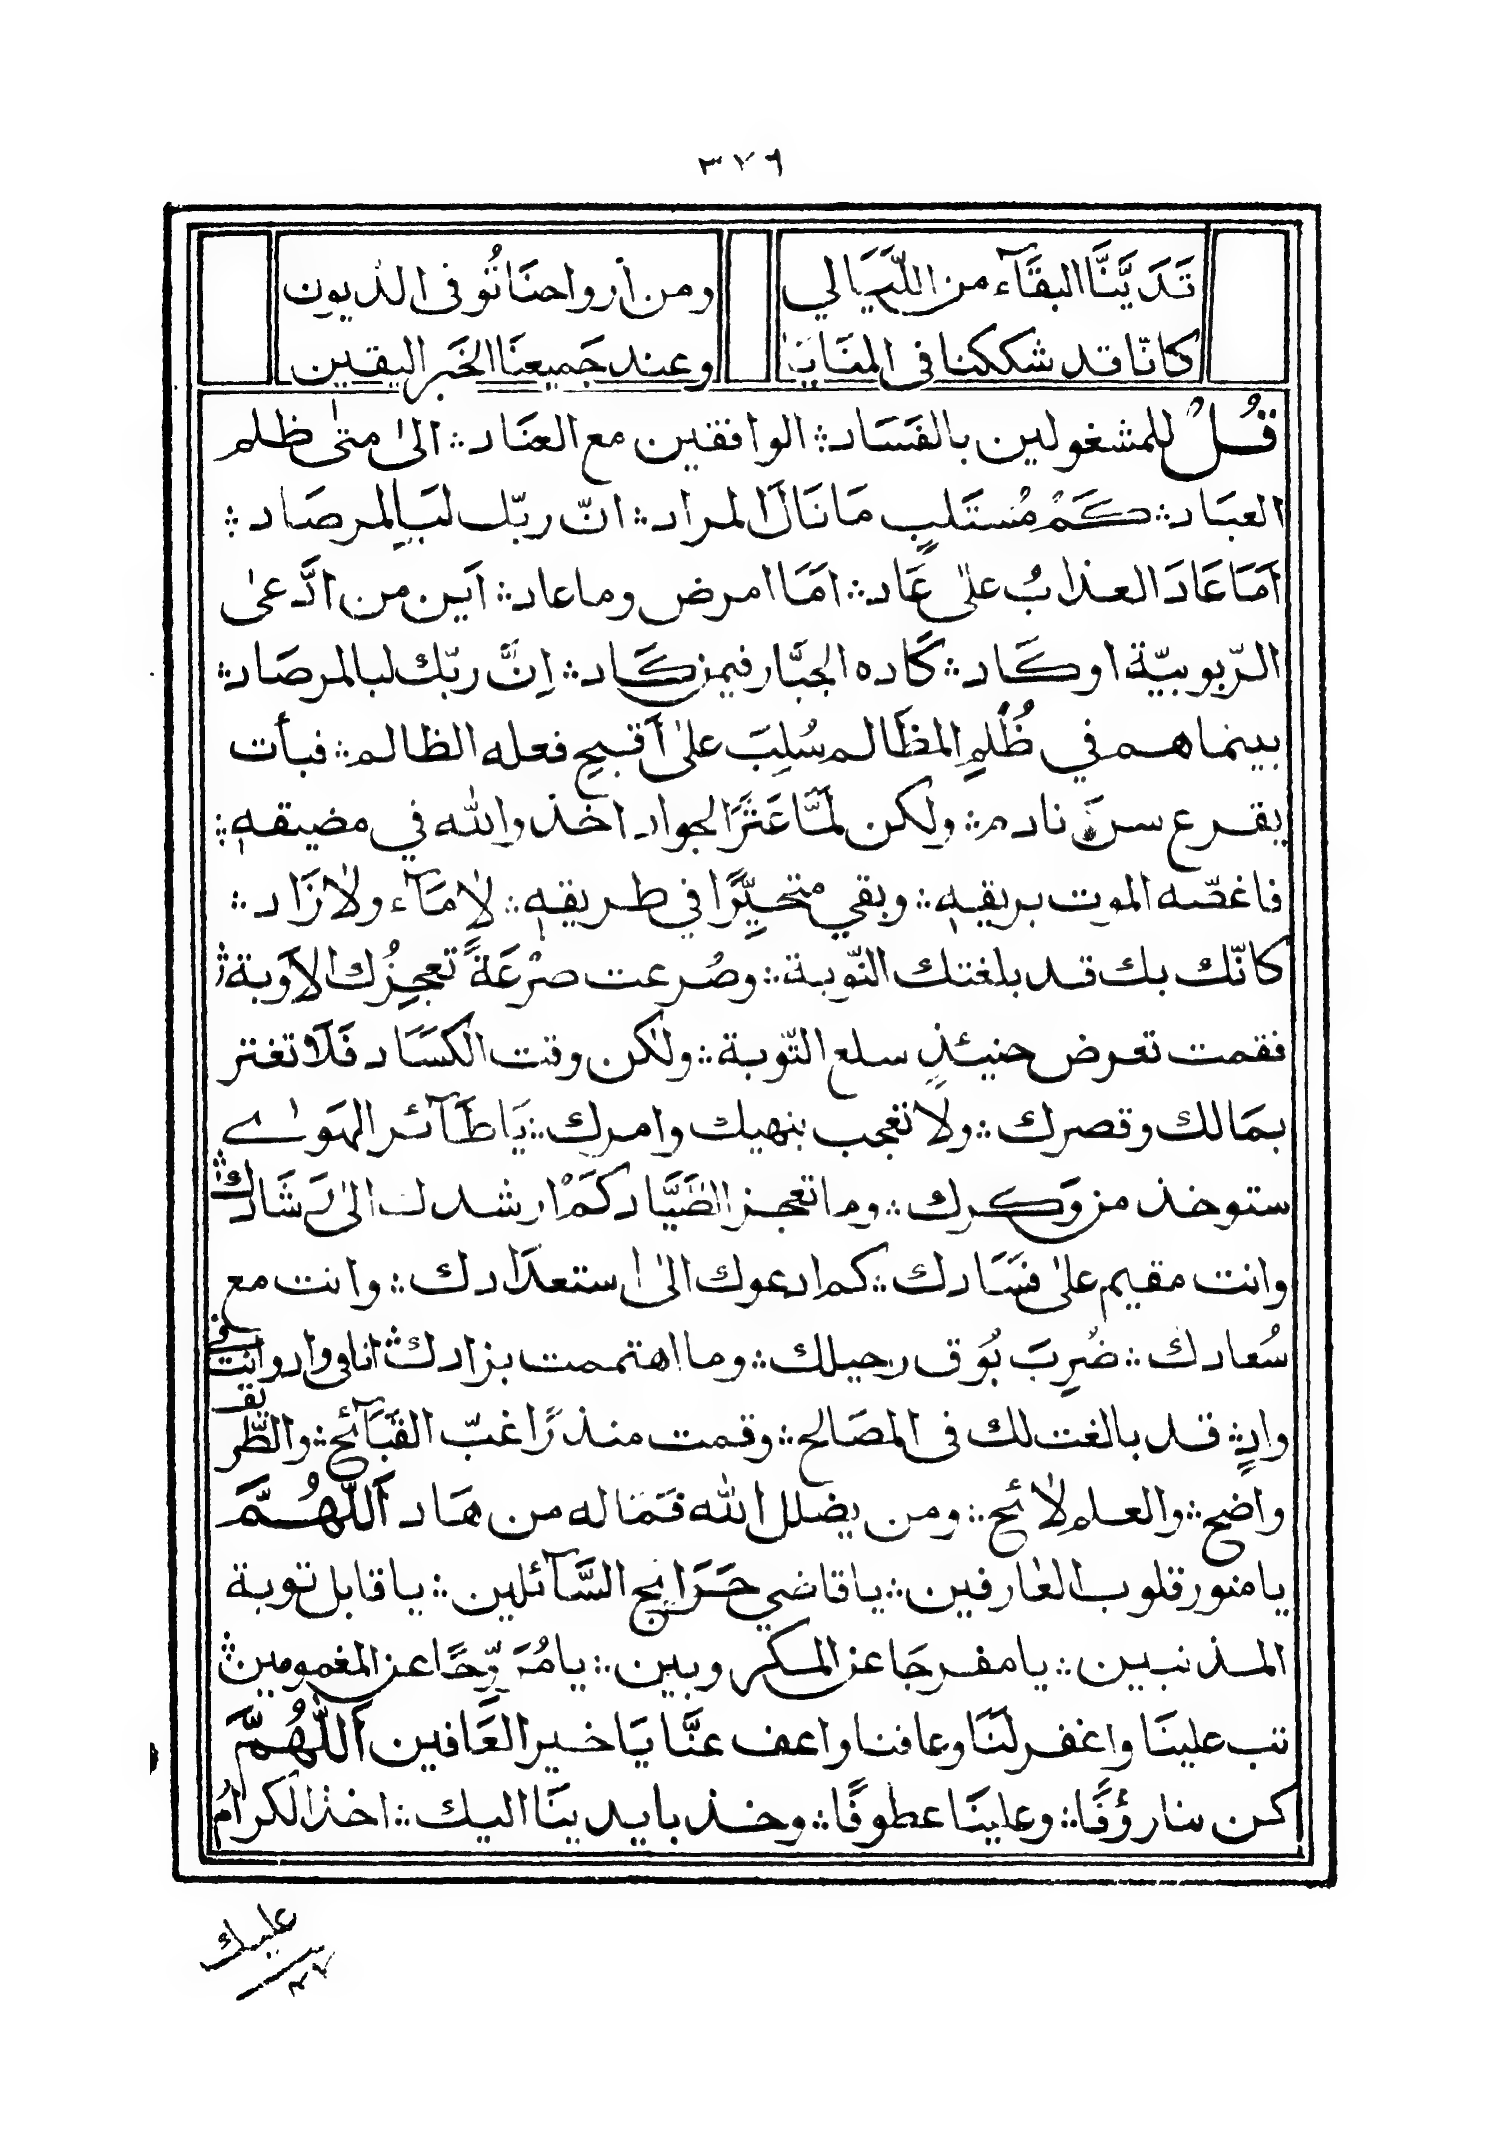 ٣٧٦
تَدَيَّنَّا البقَآء من اللّيَالي ومن أرواحنَا تُوفى الدّيون
كانّا قد شككنا فى المنَايَا وعند جَميعنَا الخَبر اليقين
قُلْ للمشغولين بالفَسَاد ؞ الوافقين مع العنَاد ؞ الىٰ متىٰ ظلم
العبَاد ؞ كَمْ مُستَلبٍ مَا نَالَ المراد ؞ انّ ربّك لَبَالمرصَاد ؞
اَمَا عَادَ العذابُ علىٰ عَاد ؞ امَا امرض وما عاد ؞ اَين من ادَّعىٰ
الرّبوبيّة اوكَاد ؞ كَاده الجبَّار فيمن كَاد ؞ اِنَّ ربّك لبالمرصَاد ؞
بينما هم في ظُلَمِ المظَالم سُلِبَ علىٰ أقبحِ فعله الظالم ؞ فبأت
يقرع سنّ نادم ؞ ولكن لَمَّا عَثَرَ الجواد اخذ والله في مضيقهٖ ؞
فاغصّه الموت بريقهٖ ؞ وبقي متحيِّرًا في طريقهٖ ؞ لامَآء ولازَاد ؞
كانّك بك قد بلغتك النّوبة ؞ وصُرعت صرْعَةً تعجِزُك الاَوبة ؞
فقمت تعرض حنيئذٍ سلع التّوبة ؞ ولٰكن وقت الكَسَاد فَلَا تغتر
بمَالك وقصرك ؞ ولا تعجب بنهيك وامرك ؞ يَاطَآئر الهَوٰے
ستوخذ من وَكرك ؞ وما تعجز الصَّيَّاد كَمْ ارشدك الىٰ رَشَادك ؞
وانت مقيم علىٰ فسَادك ؞ كم ادعوك الىٰ استعدَادك ؞ وانت مع
سُعادك ؞ ضُرِبَ بُوق رحيلك ؞ وما اهتممت بزادك ؞ انا فى واد وانت فى
وادٍ ؞ قد بالغت لك فى المصَالح ؞ وقمت منذرًا غبّ القبَآئح ؞ والطّريق
واضح ؞ والعلم لائح ؞ ومن يضلل الله فمَاله من هَاد اَللّٰهُمَّ
يا منور قلوب العارفين ؞ يا قاضي حَوَائج السَّآئلين ؞ يا قابل توبة
المذنبين ؞ يا مفرجَا عن المكروبين ؞ يا مُرَوِّحًا عن المغمومين ؞
تب علينَا واغفر لنَا وعافنا واعف عنَّا يَا خير العَافين اَللّٰهُمَّ
كن بنا رؤفًا ؞ وعلينَا عطوفًا ؞ وخذ بايدينَا اليك ؞ اخذ الكرامُ
عليك